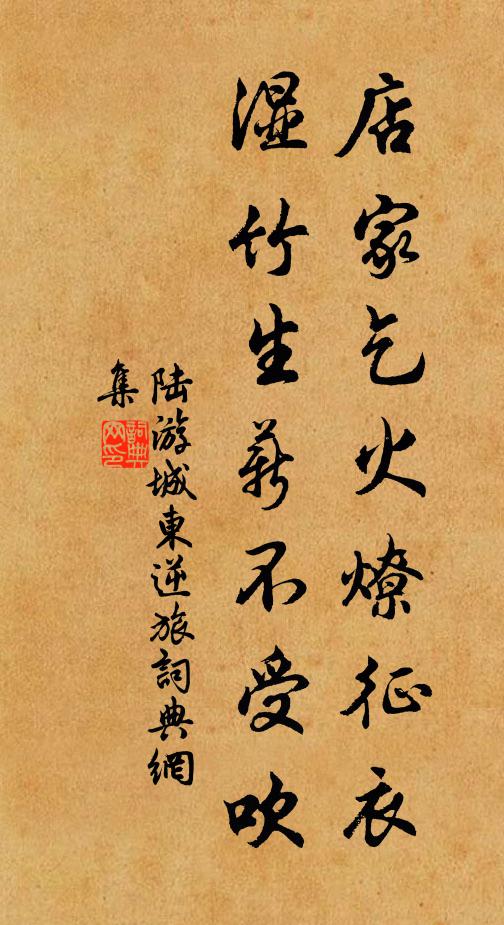 店家乞火燎征衣
湿竹生薪不受吹
陆游城東逆旅詞典網
集
詞典网印